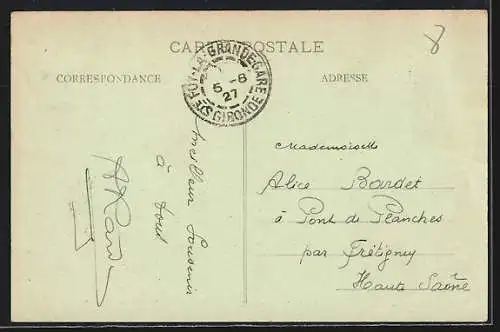 CARTE POSTALE
CORRESPONDANCE
ADRESSE
8
STE FOY-LA-GRANDE-GARE
5 -8
27
GIRONDE
Meilleur Souvenir
à tout
Mademoiselle
Alice Bardet
à Pont de Planches
par Frétigney
Haute Saône